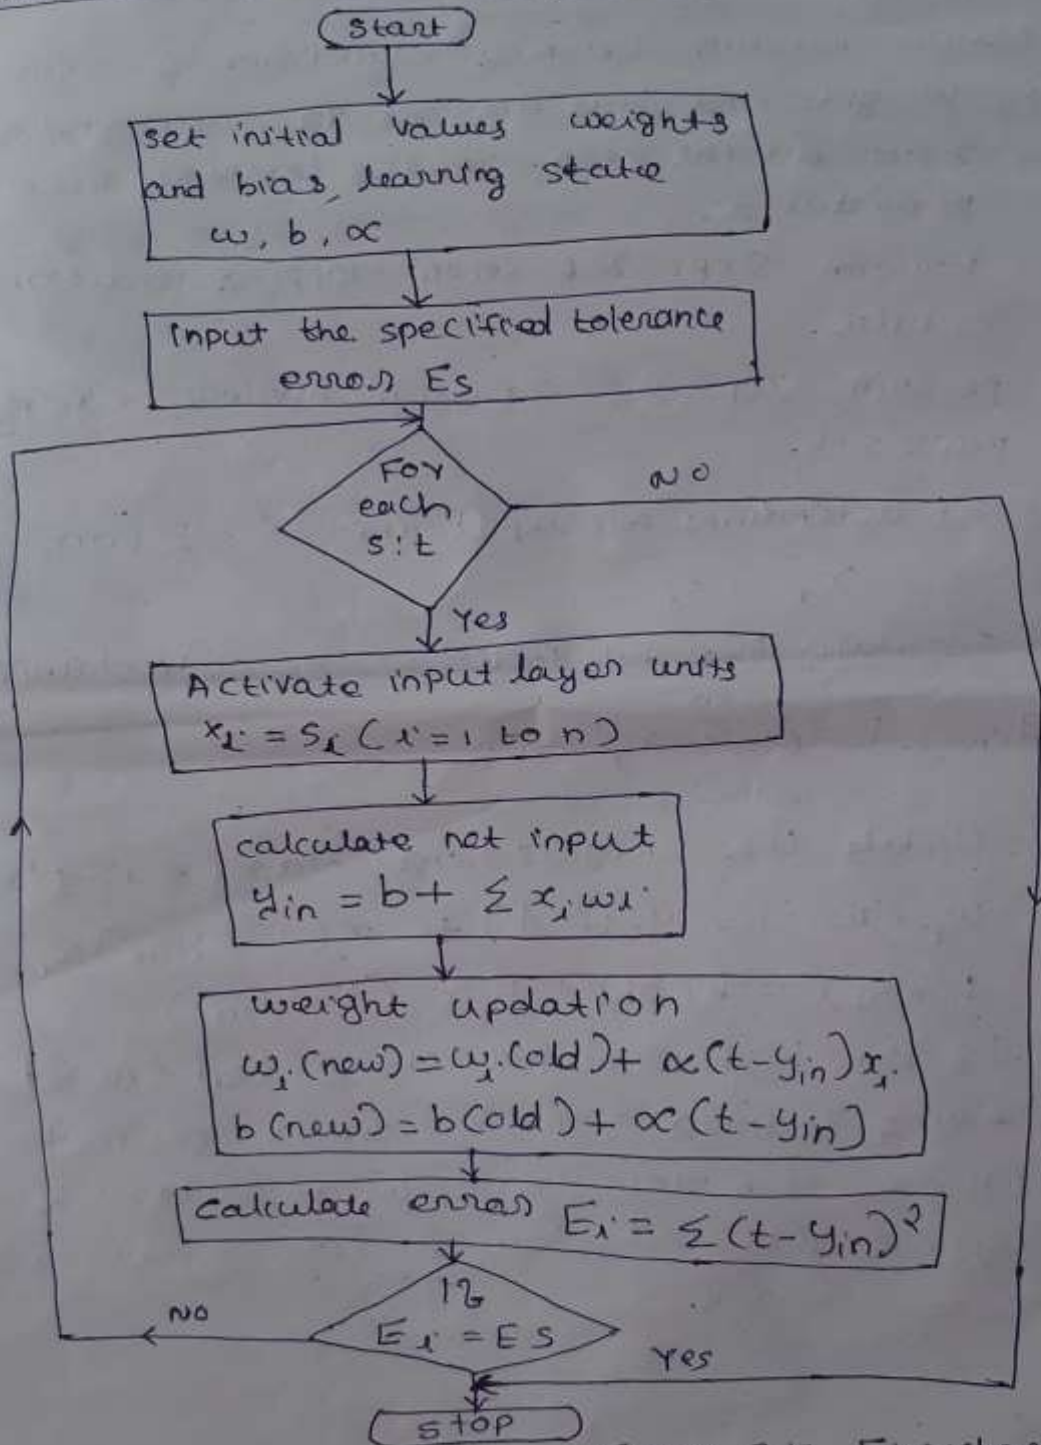 Start
set initial values weights
and bias, learning state
w, b, α
Input the specified tolerance
error Es
For
each
s:t
NO
Yes
Activate input layer units
xi = si (i = 1 to n)
calculate net input
yin = b + Σ xi wi
weight updation
wi (new) = wi (old) + α(t - yin) xi
b (new) = b (old) + α (t - yin)
calculate error Ei = Σ (t - yin)²
If
Ei = Es
NO
Yes
stop